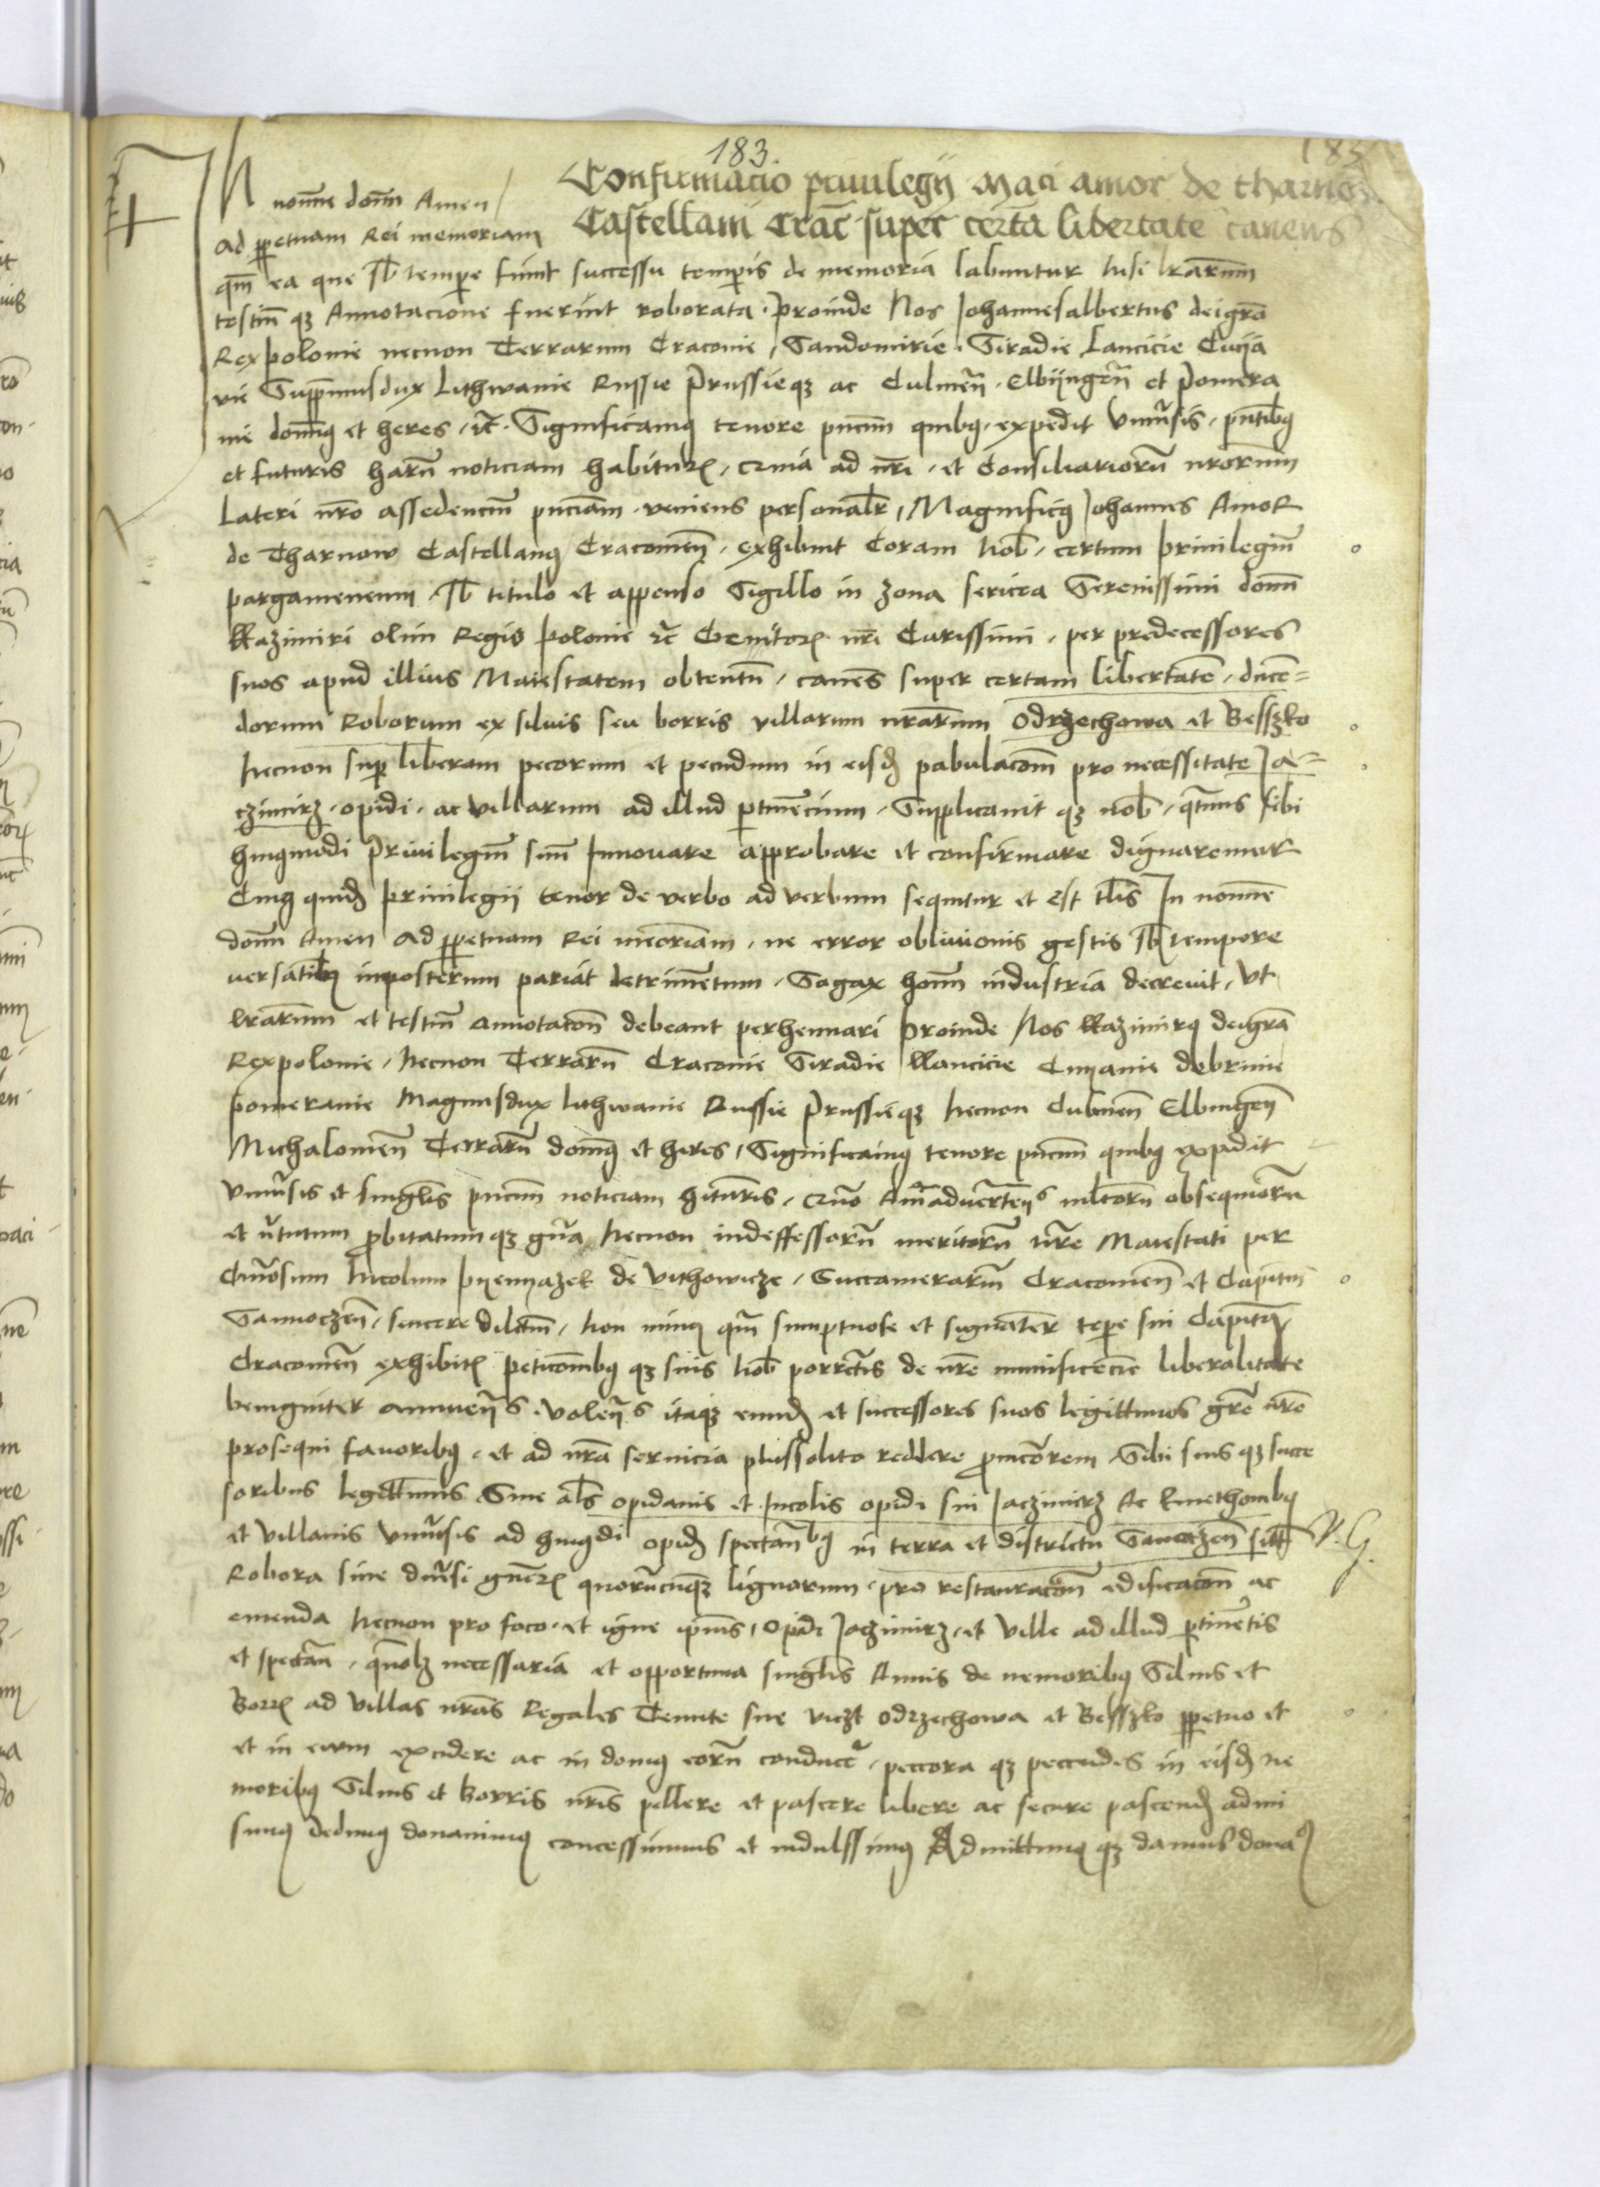 183.
183
Confirmacio priuilegij Maci amor de tharnow
Castellani Crac̄ super certa libertate canens
In nom̄ne domī Amen
Ad ꝑpetuam Rei memoriam
qm̄ ea que sb̄ tempore fiunt successu temporis de memoria labuntur nisi lr̄arum
testiū qꝫ Annotacione fuerint roborata. Proinde Nos Johannesalbertus deigrā
Rex polonie necnon Terrarum Cracouie, Sandomirie. Siradie Lancicie Cuija
vie Supp̄musdux Lithwanie Russie Prussieqꝫ ac Culmen̄. Elbijngen̄ et Pomera
nie domīꝯ et heres. ꝛc̄. Significamꝯ tenore pn̄cm̄ quibꝯ. expedit vniūsis. pn̄tibꝯ
et futuris harū noticiam habiturꝫ. quia ad nr̄i. et Consiliariorū nr̄orum
Lateri nr̄o assedenciū pn̄ciam. veniens personalr̄, Magnificꝯ Johannes Amor
de Tharnow Castellanꝯ Cracouien̄. exhibuit Coram nob̄. certum priuilegiū
pargameneum. sb̄ titulo et appenso Sigillo in zona sericea Serenissimi domī
kazimiri olim Regis polonie ꝛc̄ Genitorꝫ nr̄i Carissimi. per predecessores
suos apud illius Maiestatem obtentū. canen̄s super certam libertatē. ducē=
dorum Roborum ex siluis seu borris villarum nr̄arum Odrzechowa et Besszko
necnon suꝑ liberam pecorum et pecudum in eisd̄ pabulacōm pro necessitate Ja=
czimirz. opidi. ac villarum ad illud ꝑtinēcium. Supplicauit qꝫ nob̄. qtn̄us sibi
huiꝯmodi Priuilegiū suū Innouare approbare et confirmare dignaremur
Cuiꝯ quid̄ priuilegij tenor de verbo ad verbum sequitur et est tl̄is In nomīe
domī Amen Ad ꝑpetuam Rei memōriam. ne error obliuionis gestis sb̄ tempore
versantibꝯ inposterum pariāt detrimētum. Sagax homī industria decreuit. vt
lr̄arum et testiū annotacōn debeant perhennari Proinde Nos kazimirꝯ deigrā
Rex polonie. Necnon Terrarū Cracouie Siradie llancicie Cuyauie dobrinie
pomeranie Magnusdux lithwanie Russie Prussieqꝫ necnon Culmen̄ Elbingen̄
Michalouien̄ Terrarū domīꝯ et heres, Significamꝯ tenore pn̄cm̄ quibꝯ expedit
vniūsis et singl̄is pn̄cm̄ noticiam hituris. quō Aīaduertentes ml̄torū obsequiorū
et v̄tutum ꝓbitatumqꝫ gn̄a Necnon indeffessorū meritorū nr̄e Maiestati per
Gn̄osum Nicolaum pyenyazek de Vithowicze. Succamerariū Cracouien̄ et Capitm̄
Sannoczen̄. sincere dilectū. non minꝯ qm̄ sumptuose et signāter tēpe sui Capitāꝫ
Cracouien̄ exhibitꝫ peticōnibꝯ qꝫ suis nob̄ porrectis de nr̄e munificēcie liberalitate
benigniter annuen̄s. volen̄s itaqꝫ eund̄ et successores suos legittimos grē nr̄e
prosequi fauoribꝯ. et ad nr̄a seruicia plussolito reddere ꝓmcōrem. Sibi suis qꝫ succe
soribus legittimis Siue als̄ opidanis et Incolis opidi sui Jaczimirz Ac kmethonibꝯ
et villanis vniūsis ad huiꝯdi opid̄ spectan̄bꝯ in terra et districtu Sanoczen̄ sitū N. G.
Robora siue diūsi gn̄erꝫ quorūcūqꝫ lignorum. pro restauracōn edificacōn ac
emenda Necnon pro foco. et igne ip̄ius, opidi Jaczimirz. et ville ad illud ꝑtinētis
et spectan̄. qm̄olꝫ necessaria et opportuna singl̄is Annis de nemoribꝯ Siluis et
Borrꝫ ad villas nr̄as Regales Tenute sue viczt Odrzechowa et Besszko ꝑpetuo et
et in ewm excidere ac in domꝯ eorū conducē. peccora qꝫ peccudes in eisd̄ ne
moribꝯ Siluis et borris nr̄is pellere et pascere libere ac secure pascend̄ admi
simꝯ dedimꝯ donauimꝯ concessimus et indulssimꝯ Admittimꝯ qꝫ damus dona